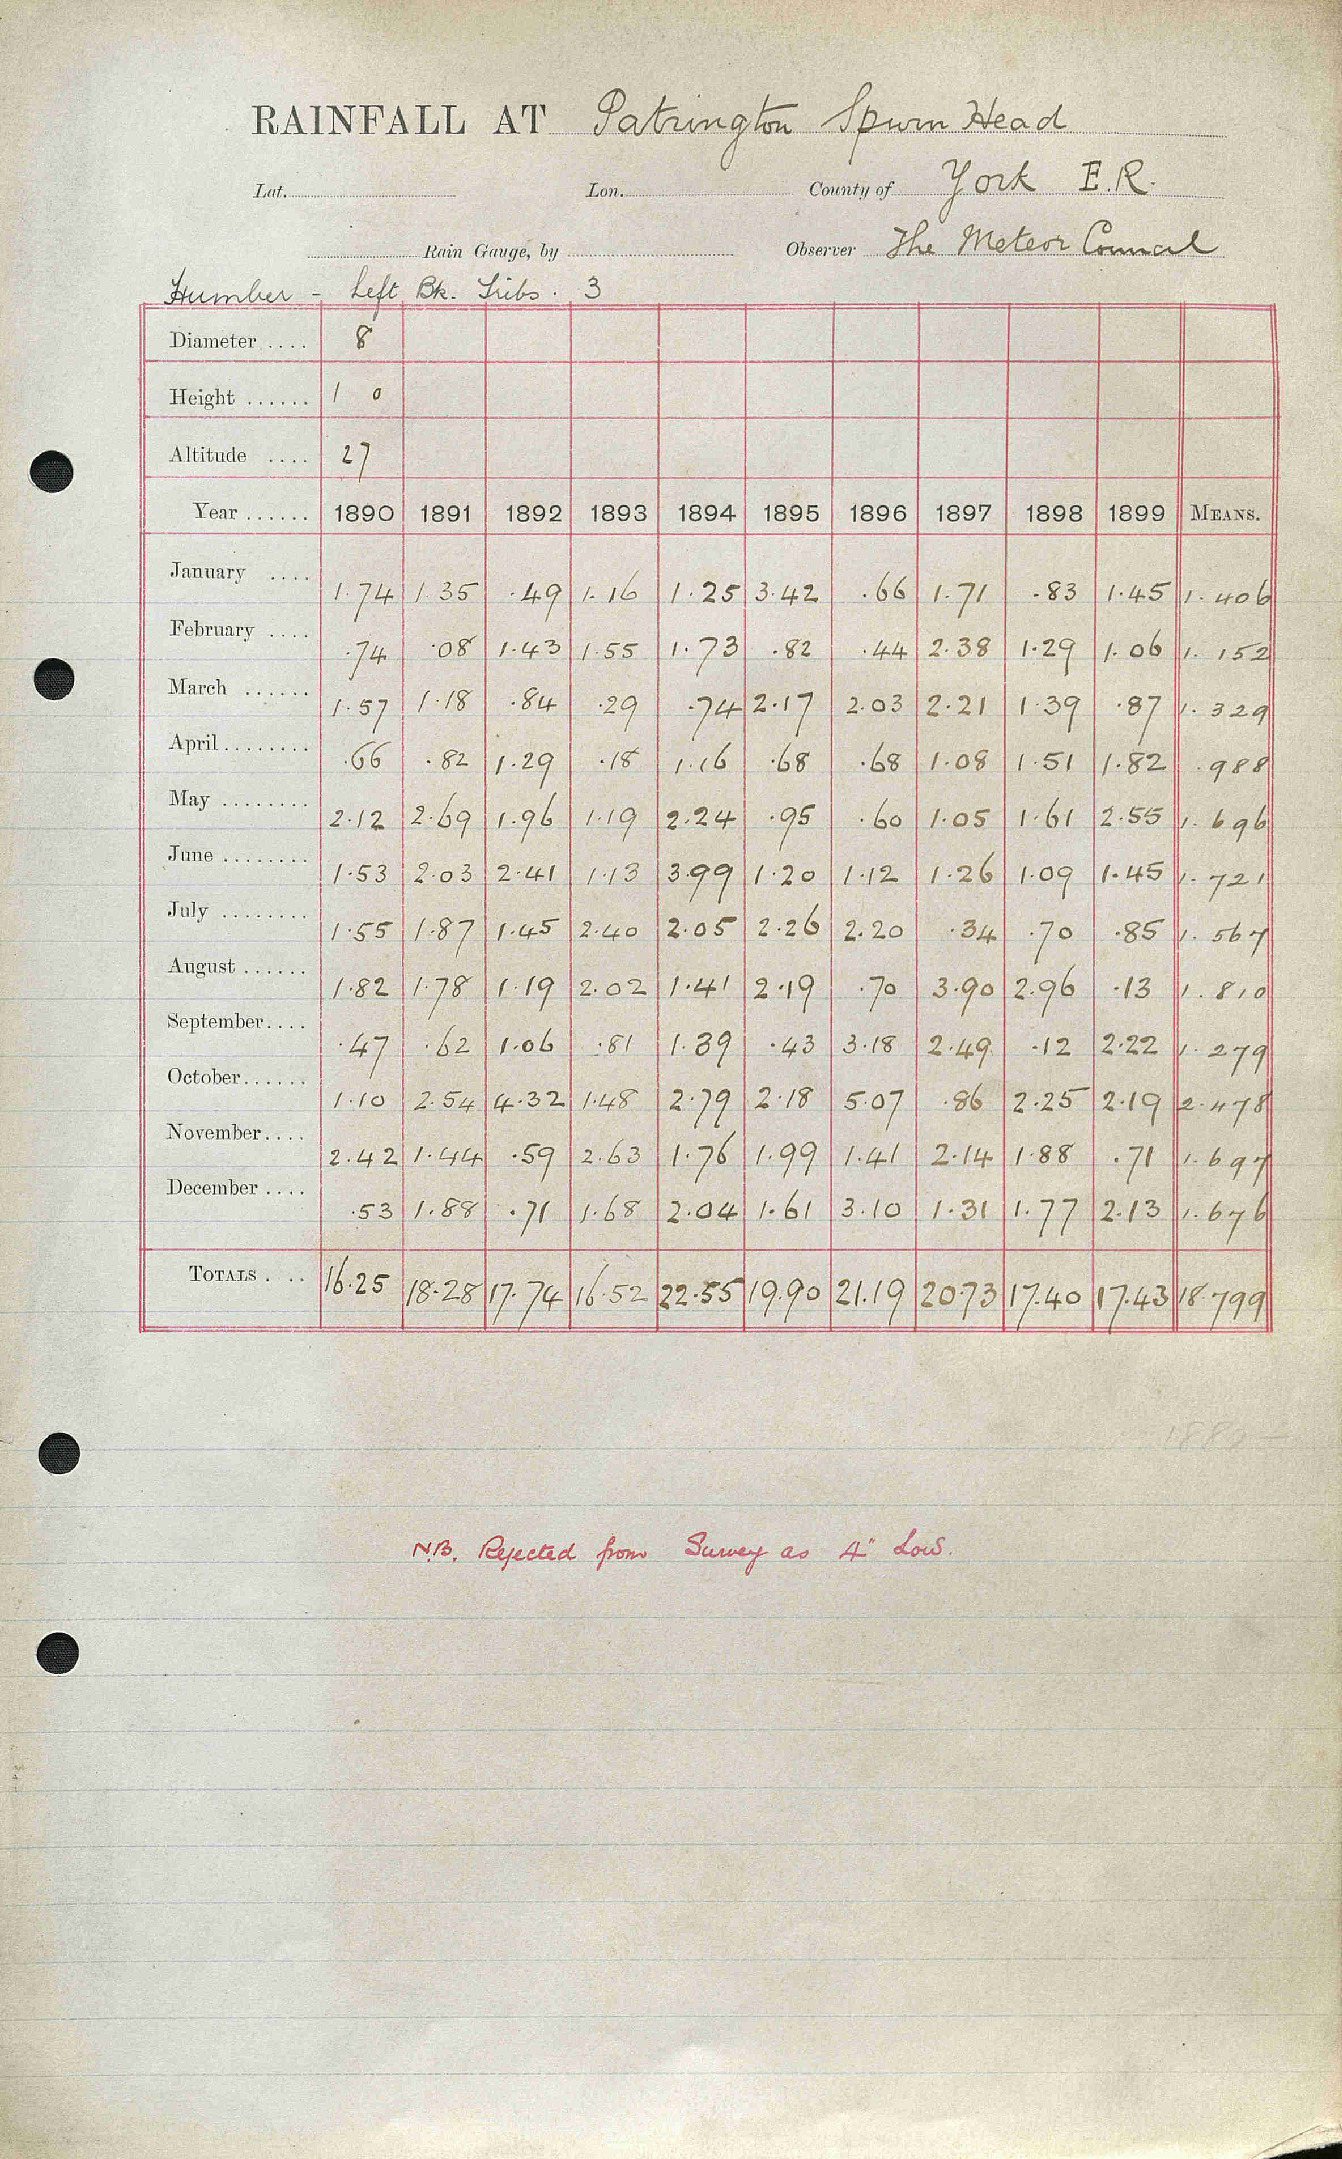 RAINFALL AT Patrington Spurn Head
Lat. Lon. County of York E.R.
Rain Gauge, by Observer The Meteor Council
Humber - Left Bk. Tribs. 3
Diameter .... 8
Height ...... 1 0
Altitude .... 27
Year ...... 1890 1891 1892 1893 1894 1895 1896 1897 1898 1899 MEANS.
January .... 1.74 1.35 .49 1.16 1.25 3.42 .66 1.71 .83 1.45 1.406
February .... .74 .08 1.43 1.55 1.73 .82 .44 2.38 1.29 1.06 1.152
March ...... 1.57 1.18 .84 .29 .74 2.17 2.03 2.21 1.39 .87 1.329
April ........ .66 .82 1.29 .18 1.16 .68 .68 1.08 1.51 1.82 .988
May ........ 2.12 2.69 1.96 1.19 2.24 .95 .60 1.05 1.61 2.55 1.696
June ........ 1.53 2.03 2.41 1.13 3.99 1.20 1.12 1.26 1.09 1.45 1.721
July ........ 1.55 1.87 1.45 2.40 2.05 2.26 2.20 .34 .70 .85 1.567
August ...... 1.82 1.78 1.19 2.02 1.41 2.19 .70 3.90 2.96 .13 1.810
September.... .47 .62 1.06 .81 1.39 .43 3.18 2.49 .12 2.22 1.279
October...... 1.10 2.54 4.32 1.48 2.79 2.18 5.07 .86 2.25 2.19 2.478
November.... 2.42 1.44 .59 2.63 1.76 1.99 1.41 2.14 1.88 .71 1.697
December .... .53 1.88 .71 1.68 2.04 1.61 3.10 1.31 1.77 2.13 1.676
TOTALS . .. 16.25 18.28 17.74 16.52 22.55 19.90 21.19 20.73 17.40 17.43 18.799
N.B. Rejected from Survey as 4" Low.